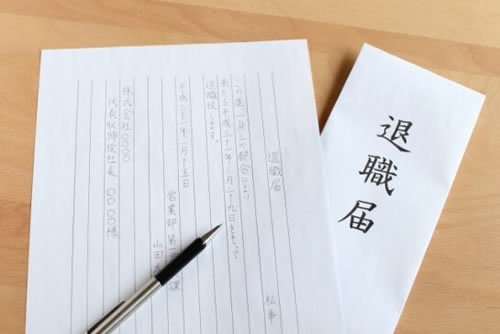 退職届
私事
この度一身上の都合により
来たる平成三十一年三月二十九日をもって
退職致します。
平成三十一年一月十五日
営業部 第一課
山田
株式会社〇〇〇〇
代表取締役社長 〇〇 〇〇様
退職届